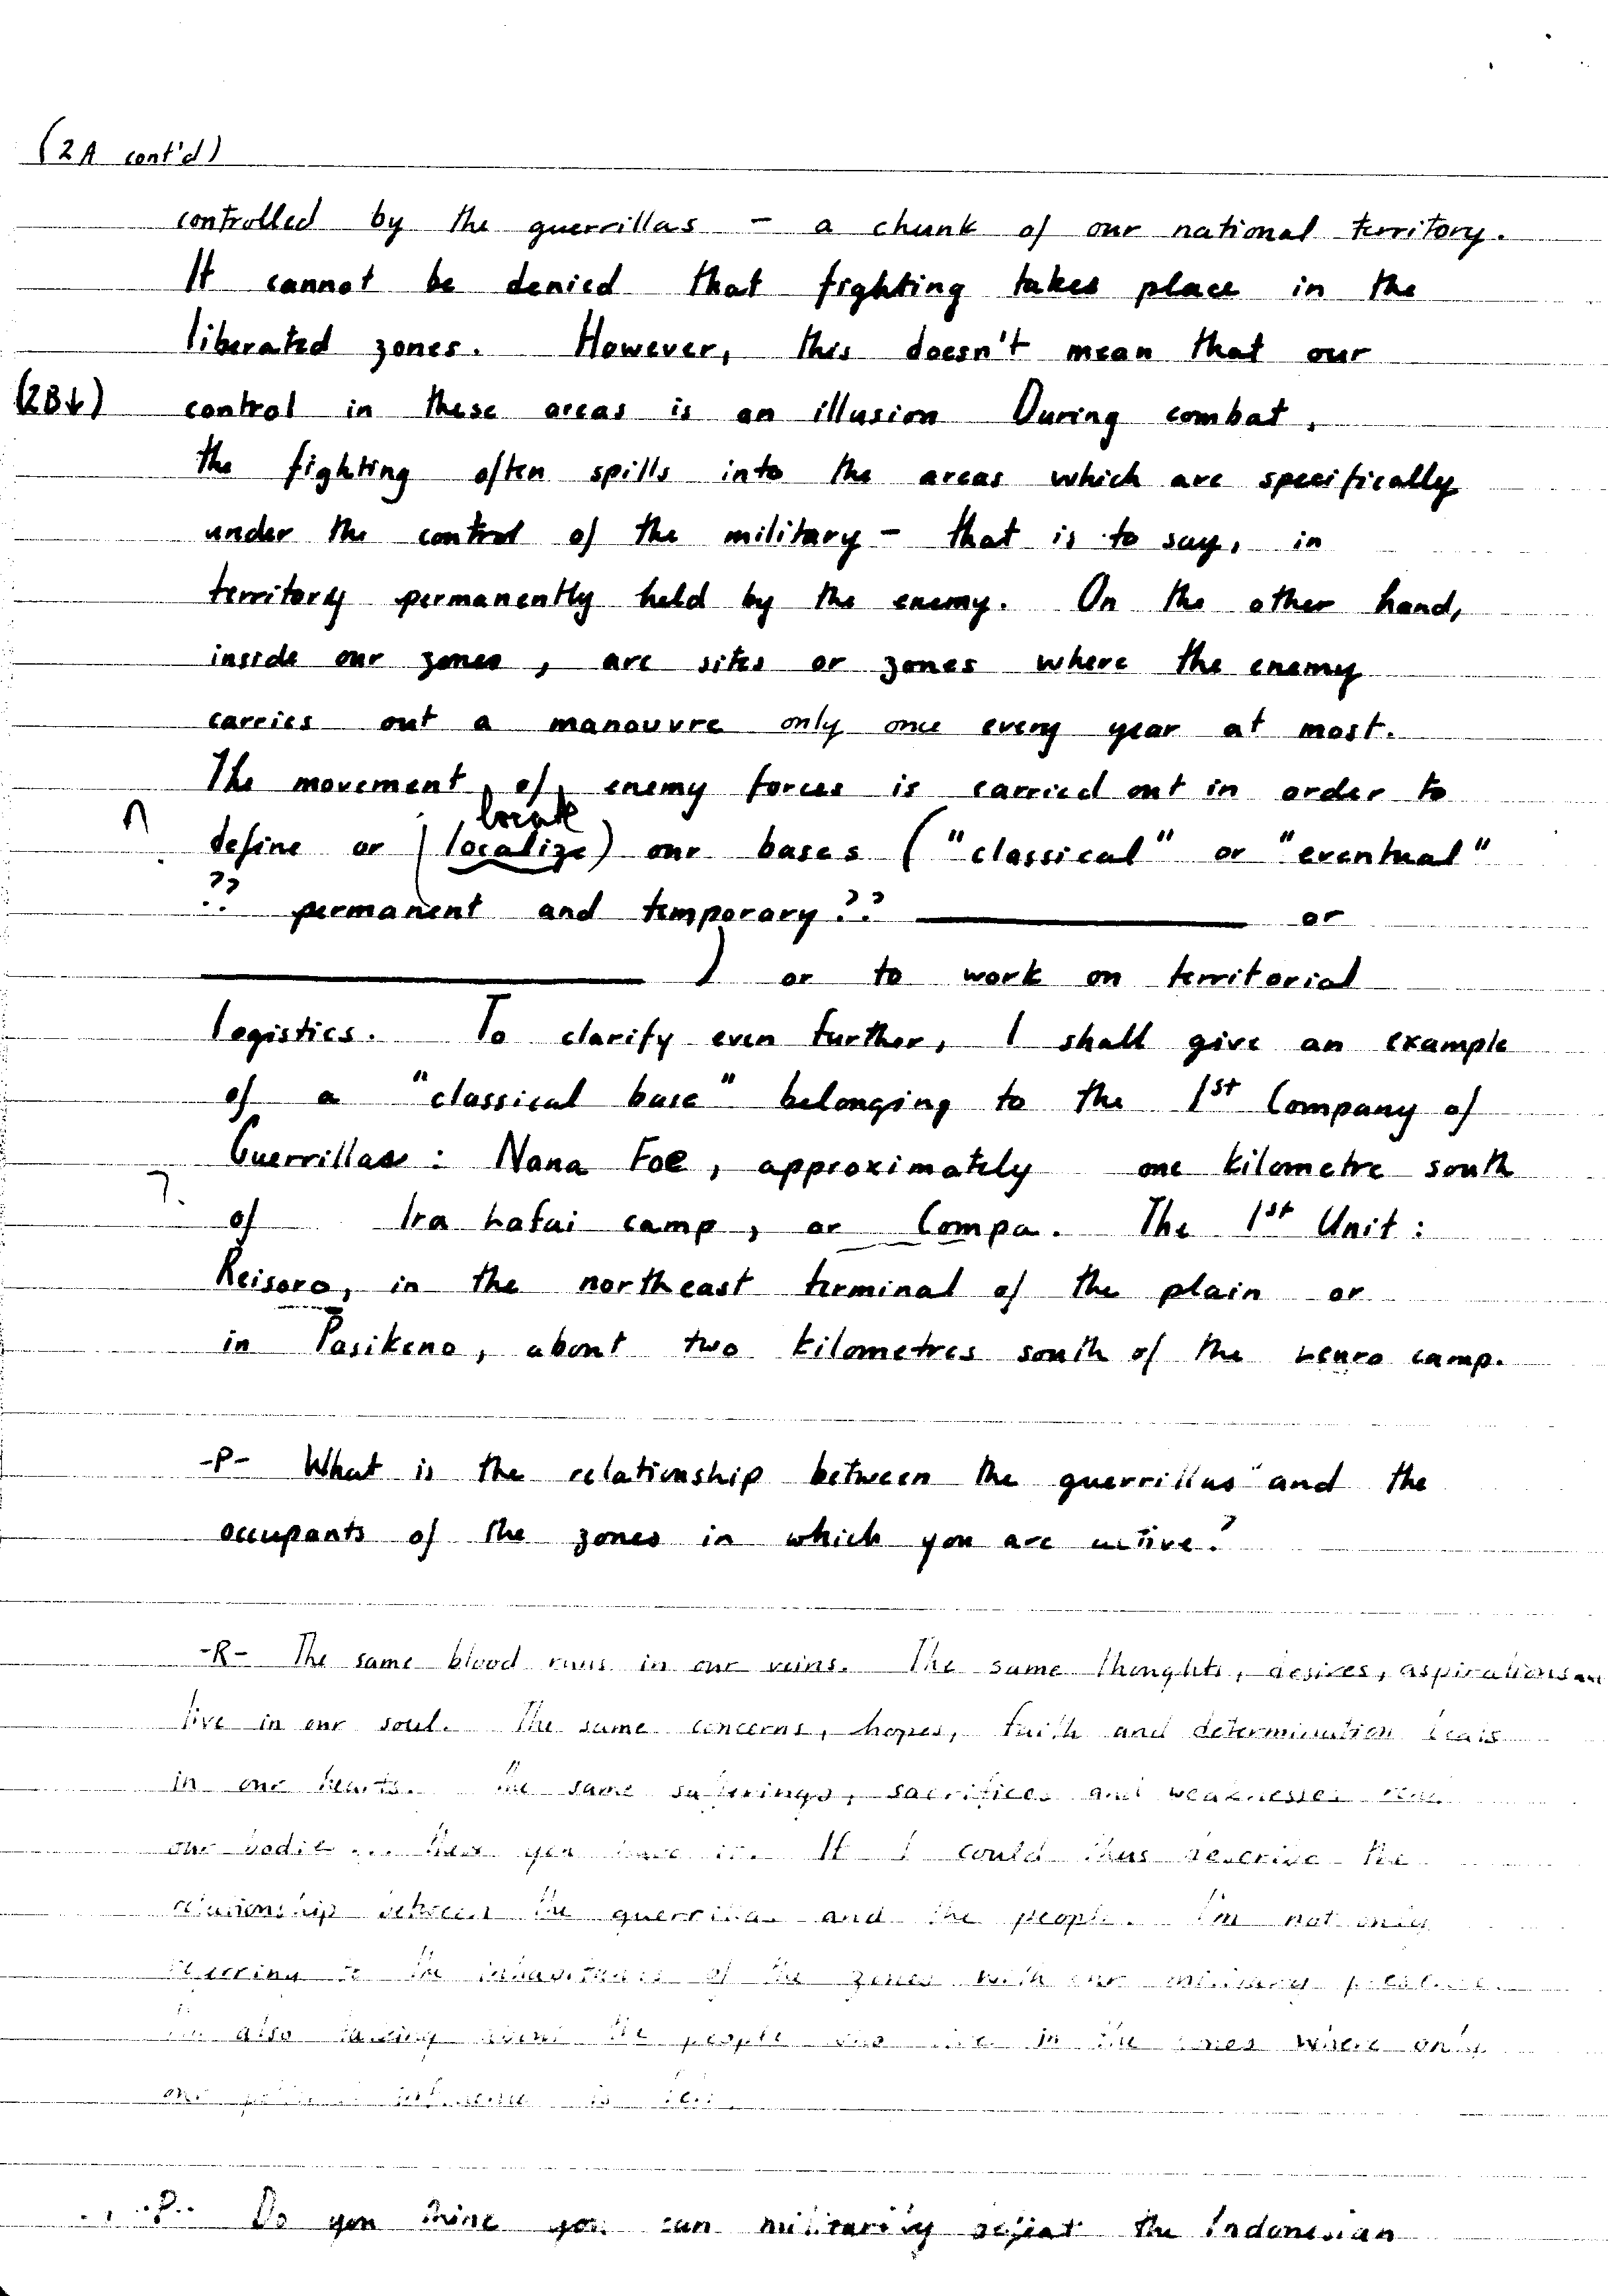 (2A cont'd)
controlled by the guerrillas - a chunk of our national territory.
It cannot be denied that fighting takes place in the
liberated zones. However, this doesn't mean that our
(2B↓) control in these areas is an illusion During combat,
the fighting often spills into the areas which are specifically
under the control of the military - that is to say, in
territory permanently held by the enemy. On the other hand,
inside our zones, are sites or zones where the enemy
carries out a manouvre only once every year at most.
The movement of enemy forces is carried out in order to
locate
define or (localize) our bases ("classical" or "eventual"
?? permanent and temporary ?? ________ or
________ ) or to work on territorial
logistics. To clarify even further, I shall give an example
of a "classical base" belonging to the 1st Company of
Guerrillas: Nana Foe, approximately one kilometre south
of Ira Lafai camp, or Compa. The 1st Unit:
Reisoro, in the northeast terminal of the plain or
in Pasikeno, about two kilometres south of the camp.
-P- What is the relationship between the guerrillas and the
occupants of the zones in which you are active?
-R- The same blood runs in our veins. The same thoughts, desires, aspirations
live in our soul. The same concerns, hopes, faith and determination beats
in our hearts. The same sufferings, sacrifices and weaknesses
our bodies... you have it. If I could thus describe the
relationship between the guerrillas and the people. I'm not only
referring to the inhabitants of the zones with our military presence.
I'm also talking about the people who live in the zones where only
our is
-P- Do you think you can militarily defeat the Indonesian